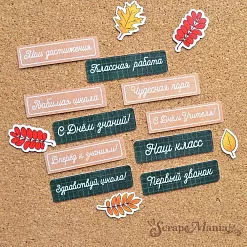 Наши достижения
Классная работа
Чудесная пора
Любимая школа
С Днём знаний!
С Днём Учителя!
Вперёд к знаниям!
Наш класс
Здравствуй школа!
Первый звонок
ScrapeMania.ru